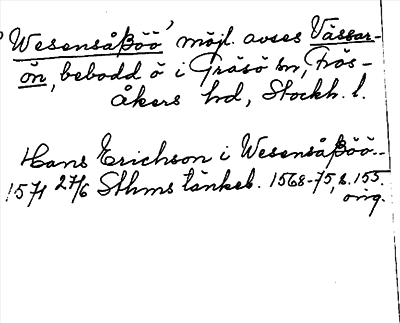 'Wesensåßöö' möjl. avses Vässar-
ön, bebodd ö i Gräsö sn, Frös-
åkers hd, Stockh. l.
Hans Erichson i Wesensåßöö..
1571 27/6 Sthms tänkeb. 1568-75, s. 155.
orig.